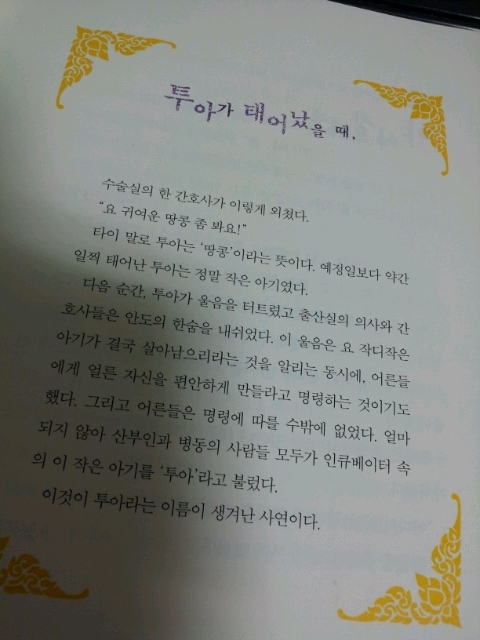 투아가 태어났을 때,
수술실의 한 간호사가 이렇게 외쳤다.
“요 귀여운 땅콩 좀 봐요!”
타이 말로 투아는 ‘땅콩’이라는 뜻이다. 예정일보다 약간
일찍 태어난 투아는 정말 작은 아기였다.
다음 순간, 투아가 울음을 터트렸고 출산실의 의사와 간
호사들은 안도의 한숨을 내쉬었다. 이 울음은 요 작디작은
아기가 결국 살아남으리라는 것을 알리는 동시에, 어른들
에게 얼른 자신을 편안하게 만들라고 명령하는 것이기도
했다. 그리고 어른들은 명령에 따를 수밖에 없었다. 얼마
되지 않아 산부인과 병동의 사람들 모두가 인큐베이터 속
의 이 작은 아기를 ‘투아’라고 불렀다.
이것이 투아라는 이름이 생겨난 사연이다.